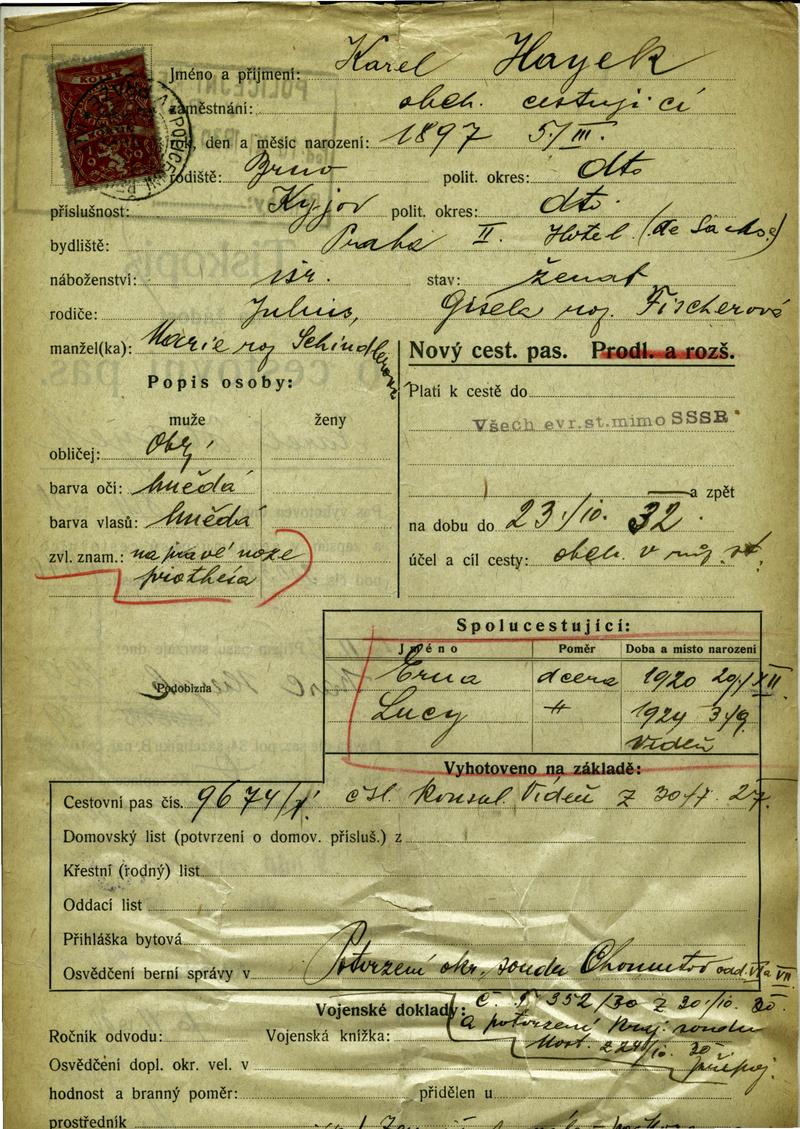 Jméno a příjmení: Karel Hayek
zaměstnání: obch. cestující
rok, den a měsíc narození: 1897 5./III.
rodiště: Brno polit. okres: dto
příslušnost: Kyjov polit. okres: dto.
bydliště: Praha II. Hotel (de Sachse)
náboženství: isr. stav: ženat
rodiče: Julius, Gisela roz. Fischerová
manžel(ka): Marie roz Schindlerová
Nový cest. pas. Prodl. a rozš.
Popis osoby:
Platí k cestě do
muže ženy
Všech evr.st.mimo SSSR
obličej: obly
barva očí: hnědá
a zpět
barva vlasů: hnědá
na dobu do 23./10. 32.
zvl. znam.: na pravé noze
prothesa
účel a cíl cesty: obch. v
Spolucestující:
Jméno Poměr Doba a místo narození
Erna dcera 1920 29./XII
Podobizna
Lucy " 1924 3./9.
Vídeň
Vyhotoveno na základě:
Cestovní pas čís. 9674 čsl. konsul. Vídeň z 30./7. 27.
Domovský list (potvrzení o domov. přísluš.) z
Křestní (rodný) list
Oddací list
Přihláška bytová
Osvědčení berní správy v Potvrzení okr. soudu Chomutov odd. VI a VII
Vojenské doklady: č. 352/30 z 30./10. 30
a potvrzení kraj. soudu
Ročník odvodu: Vojenská knižka: Most. z 24/10. 30
Osvědčení dopl. okr. vel. v
hodnost a branný poměr: přidělen u
prostředník